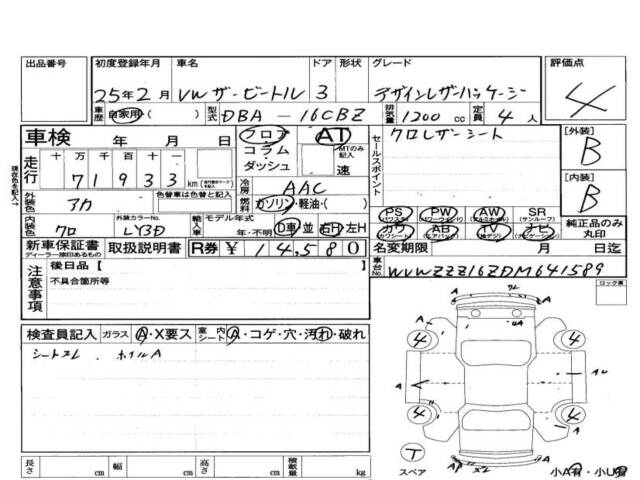 出品番号 初度登録年月 車名 ドア 形状 グレード 評価点
25年2月 VW ザ・ビートル 3 デザインレザーパッケージ 4
車歴 自家用・( ) 型式 DBA-16CBZ 排気量 1200 cc 定員 4 人
車検 年 月 日 フロア AT セールスポイント クロレザーシート [外装] B
走行 十 万 千 百 十 一 コラム MTのみ記入
7 1 9 3 3 km ダッシュ 速
現在色を記入→ 外装色 アカ 色替車は色替と記入 冷房 AAC [内装] B
燃料 ガソリン・軽油・( )
PS PW AW SR (サンルーフ)
内装色 クロ 外装カラーNo. LY3D 輸入車 モデル年式 年・不明 D車 並 右H 左H カワ AB TV ナビ 純正品のみ丸印
新車保証書 ディーラー捺印あるもの 取扱説明書 R券 ¥ 14,580 名変期限 月 日迄
注意事項 後日品 車台No. WVWZZZ16ZDM641589
不具合箇所等 ロック車
検査員記入 ガラス A・X要ス 室内シート A・コゲ・穴・汚れ・破れ
シートスレ . ホイルA
4 4 A A 4 4 A
T スペア
長さ cm 幅 cm 高さ cm 積載量 kg 小A有・小U有